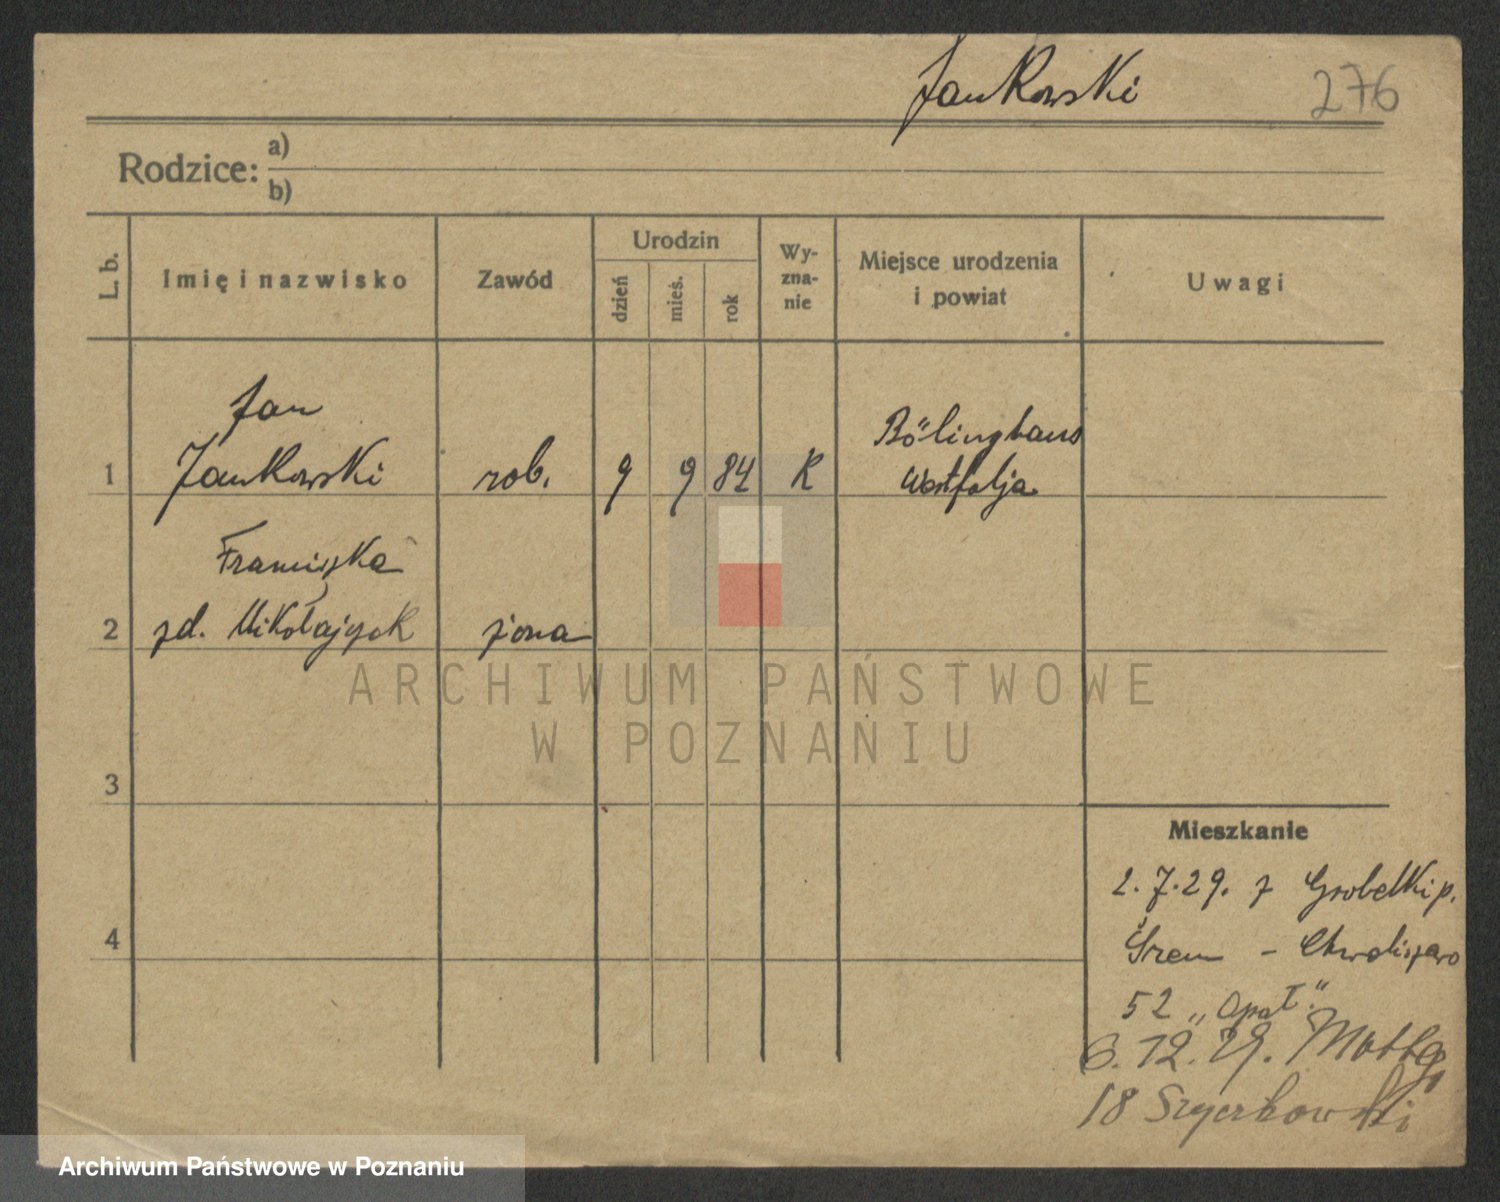 Jankowski 276
Rodzice: a)
b)
L. b. Imię i nazwisko Zawód Urodzin dzień mieś. rok Wy-zna-nie Miejsce urodzenia i powiat Uwagi
Jan
1 Jankowski rob. 9 9 84 K Bölinghaus
Westfalja
Franciszka
2 zd. Mikołajczak żona
ARCHIWUM PAŃSTWOWE
W POZNANIU
3
Mieszkanie
2.7.29. z Grobelki p.
4 Śrem – Chwaliszewo
52 „Opat."
6.12.29.
18
Archiwum Państwowe w Poznaniu